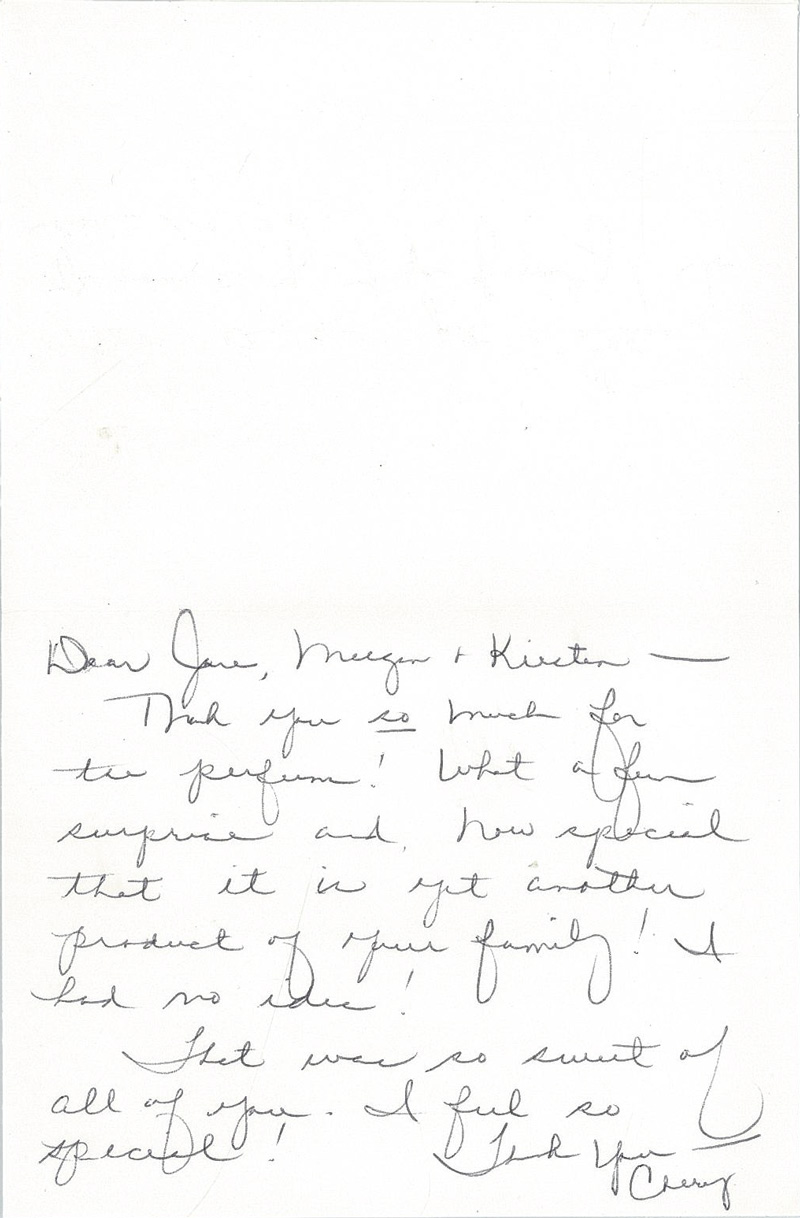 Dear Jane, Meegan + Kirsten —
Thank you so much for
the perfume! What a fun
surprise and how special
that it is yet another
product of your family! I
had no idea!
That was so sweet of
all of you. I feel so
special! Thank You —
Cheryl